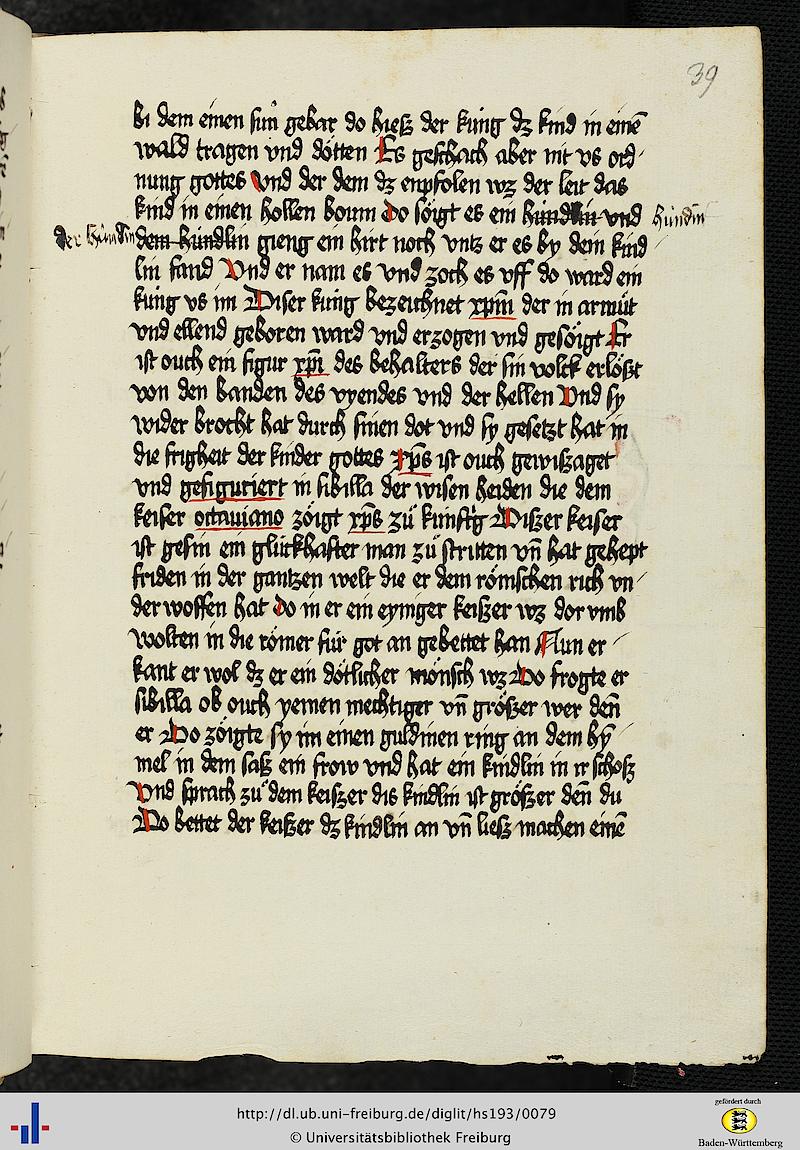 39
bi dem einen sun̄ gebar do hiesz der kúng dz kind in einē
wald tragen vnd dötten Es geschach aber nit vs ord-
nung gottes Vnd der dem dz enpfolen wz der leit das
kind in einen hollen boum do söigt es ein húndlin vnd húndin
der húndin dem húndlin gieng ein hirt noch vntz er es by dem kind
lin fand Vnd er nam es vnd zoch es vff do ward ein
kúng vs im Diser kúng bezeichnet xp̄m der in armůt
vnd ellend geboren ward vnd erzogen vnd gesöigt Er
ist ouch ein figur xp̄i des behalters der sin volck erlöszt
von den banden des vyendes vnd der hellen Vnd sy
wider brocht hat durch sinen dot vnd sy gesetzt hat in
die frigheit der kinder gottes xp̄s ist ouch gewiszaget
vnd gefiguriert in sibilla der wisen heiden die dem
keiser octauiano zöigt xp̄s zů kúnftg Diszer keiser
ist gesin ein glúckhafter man zů stritten vn̄ hat gehept
friden in der gantzen welt die er dem römschen rich vn-
der woffen hat do in er ein eyniger keiszer wz dor vmb
wolten in die römer fúr got an gebettet han Nun er-
kant er wol dz er ein dötlicher mönsch wz Do frogte er
sibilla ob ouch yemen mechtiger vn̄ gröszer wer den̄
er Do zöigte sy im einen guldinen ring an dem hȳ-
mel in dem sasz ein frow vnd hat ein kindlin in ir schosz
Vnd sprach zů dem keiszer dis kindlin ist gröszer den̄ du
Do bettet der keiszer dz kindlin an vn̄ liesz machen einē
http://dl.ub.uni-freiburg.de/diglit/hs193/0079
© Universitätsbibliothek Freiburg
gefördert durch
Baden-Württemberg